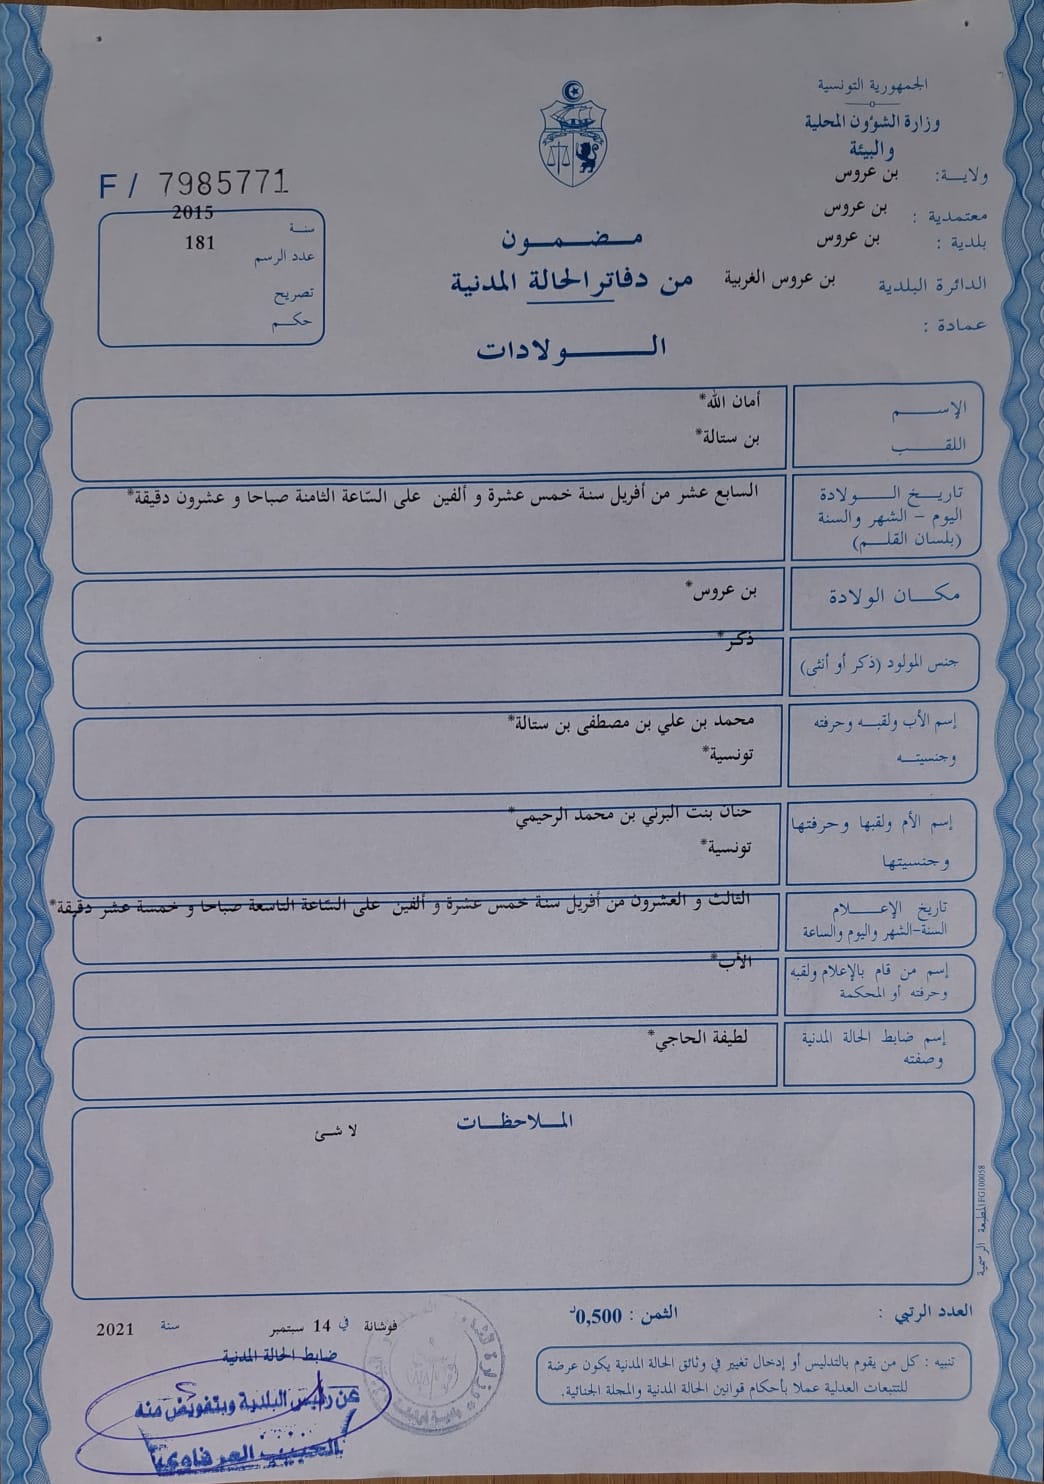 الجمهورية التونسية
وزارة الشؤون المحلية
والبيئة
ولاية: بن عروس
معتمدية : بن عروس
بلدية : بن عروس
الدائرة البلدية بن عروس الغربية
عمادة :
F / 7985771
سنة 2015
عدد الرسم 181
تصريح
حكم
مضمون
من دفاتر الحالة المدنية
الولادات
الإسم أمان الله*
اللقب بن ستالة*
تاريخ الولادة السابع عشر من أفريل سنة خمس عشرة و ألفين على السّاعة الثامنة صباحا و عشرون دقيقة*
اليوم - الشهر والسنة
(بلسان القلم)
مكان الولادة بن عروس*
جنس المولود (ذكر أو أنثى) ذكر*
إسم الأب ولقبه وحرفته محمد بن علي بن مصطفى بن ستالة*
وجنسيته تونسية*
إسم الأم ولقبها وحرفتها حنان بنت البرني بن محمد الرحيمي*
وجنسيتها تونسية*
تاريخ الإعلام الثالث و العشرون من أفريل سنة خمس عشرة و ألفين على السّاعة التاسعة صباحا و خمسة عشر دقيقة*
السنة-الشهر واليوم والساعة
إسم من قام بالإعلام ولقبه الأب*
وحرفته أو المحكمة
إسم ضابط الحالة المدنية لطيفة الحاجي*
وصفته
الملاحظات
لا شئ
المطبعة الرسمية FG100058
العدد الرتبي :
الثمن : 0,500د
تنبيه : كل من يقوم بالتدليس أو إدخال تغيير في وثائق الحالة المدنية يكون عرضة
للتتبعات العدلية عملا بأحكام قوانين الحالة المدنية والمجلة الجنائية.
فوشانة في 14 سبتمبر سنة 2021
ضابط الحالة المدنية
عن رئيس البلدية وبتفويض منه
الحبيب العرفاوي